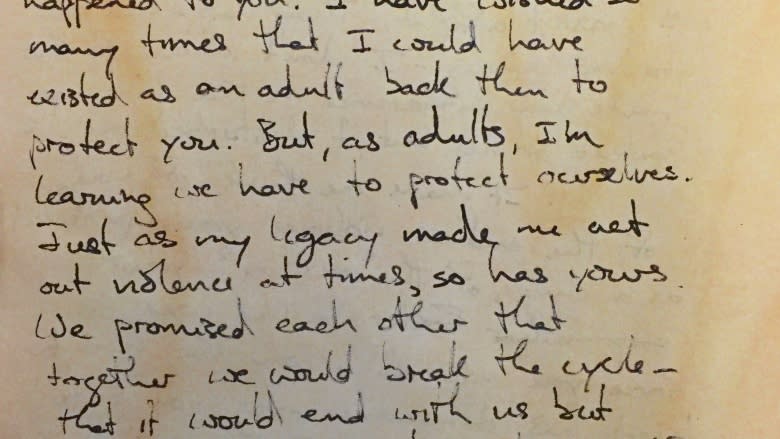 happened to you. I have wished so
many times that I could have
existed as an adult back then to
protect you. But, as adults, I'm
learning we have to protect ourselves.
Just as my legacy made me act
out violence at times, so has yours.
We promised each other that
together we would break the cycle –
that it would end with us but